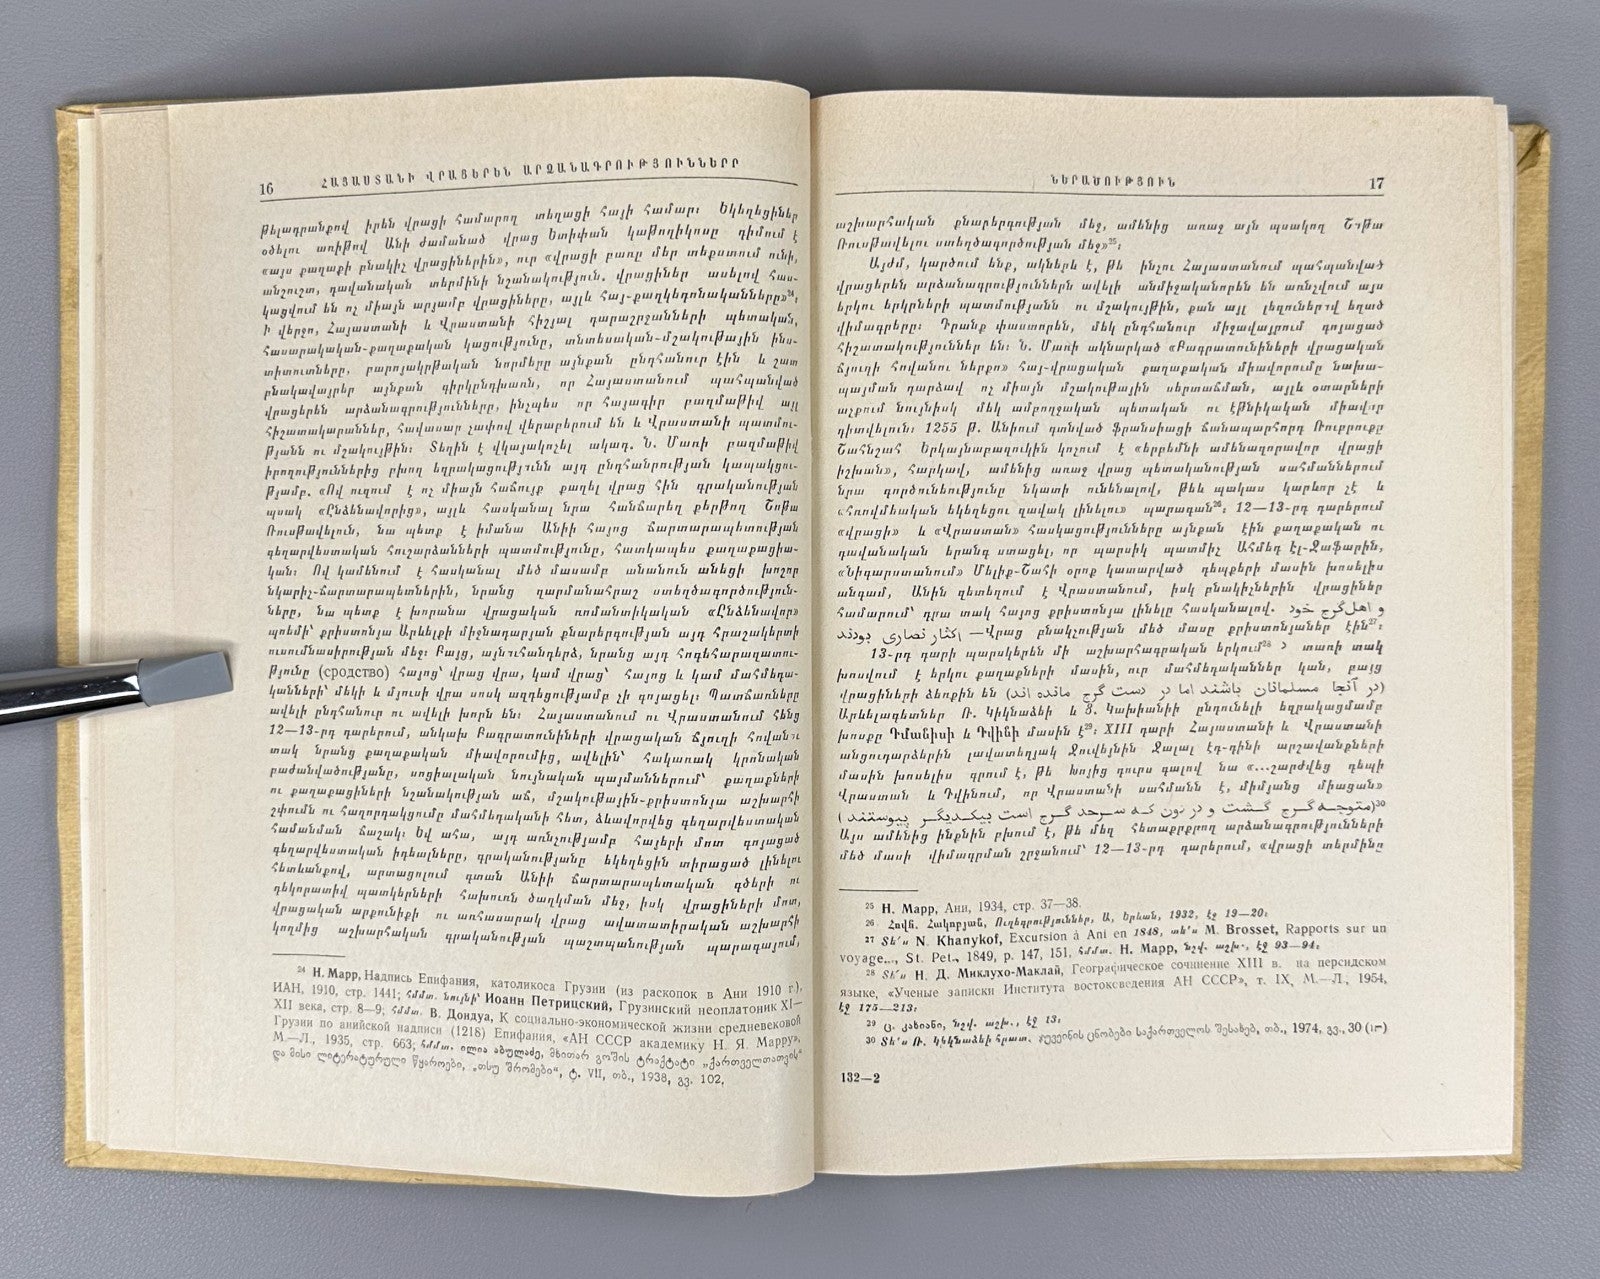 16 ՀԱՅԱՍՏԱՆԻ ՎՐԱՑԵՐԵՆ ԱՐՁԱՆԱԳՐՈՒԹՅՈՒՆՆԵՐԸ
թելադրանքով իրեն վրացի համարող տեղացի հայի համար։ Եկեղեցիներ
օծելու առիթով Անի ժամանած վրաց Եպիփան կաթողիկոսը դիմում է
«այս քաղաքի բնակիչ վրացիներին», ուր «վրացի բառը մեր տեքստում ունի,
անշուշտ, դավանական տերմինի նշանակություն. վրացիներ ասելով հաս-
կացվում են ոչ միայն արյամբ վրացիները, այլև հայ-քաղկեդոնականները»²⁴։
Ի վերջո, Հայաստանի և Վրաստանի հիշյալ դարաշրջանների պետական,
հասարակական-քաղաքական կացությունը, տնտեսական-մշակութային ինս-
տիտուտները, բարոյակրթական նորմերը այնքան ընդհանուր էին և շատ
բնակավայրեր այնքան գիրկընդխառն, որ Հայաստանում պահպանված
վրացերեն արձանագրությունները, ինչպես որ հայագիր բազմաթիվ այլ
հիշատակարաններ, հավասար չափով վերաբերում են և Վրաստանի պատմու-
թյանն ու մշակույթին։ Տեղին է վկայակոչել ակադ. Ն. Մառի բազմաթիվ
իրողություններից բխող եզրակացությունն այդ ընդհանրության կապակցու-
թյամբ. «Ով ուզում է ոչ միայն հաճույք քաղել վրաց հին գրականության
պսակ «Ընձենավորից», այլև հասկանալ նրա հանճարեղ քերթող Շոթա
Ռուսթավելուն, նա պետք է իմանա Անիի հայոց ճարտարապետության
գեղարվեստական հուշարձանների պատմությունը, հատկապես քաղաքացիա-
կան։ Ով կամենում է հասկանալ մեծ մասամբ անանուն անեցի խոշոր
նկարիչ-ճարտարապետներին, նրանց զարմանահրաշ ստեղծագործություն-
ները, նա պետք է խորանա վրացական ռոմանտիկական «Ընձենավոր»
պոեմի՝ քրիստոնյա Արևելքի միջնադարյան քնարերգության այդ հրաշակերտի
ուսումնասիրության մեջ։ Բայց, այնուհանդերձ, նրանց այդ հոգեհարազատու-
թյունը (сродство) հայոց՝ վրաց վրա, կամ վրաց՝ հայոց և կամ մահմեդա-
կանների՝ մեկի և մյուսի վրա սոսկ ազդեցությամբ չի գոյացել։ Պատճառները
ավելի ընդհանուր ու ավելի խորն են։ Հայաստանում ու Վրաստանում հենց
12—13-րդ դարերում, անկախ Բագրատունիների վրացական ճյուղի հովանու
տակ նրանց քաղաքական միավորումից, ավելին՝ հակառակ կրոնական
բաժանվածությանը, սոցիալական նույնական պայմաններում՝ քաղաքների
ու քաղաքացիների նշանակության աճ, մշակութային-քրիստոնյա աշխարհի
շփումն ու հաղորդակցումը մահմեդականի հետ, ձևավորվեց գեղարվեստական
համանման ճաշակ։ Եվ ահա, այդ առնչությամբ հայերի մոտ գոյացած
գեղարվեստական իդեալները, գրականությանը եկեղեցին տիրացած լինելու
հետևանքով, արտացոլում գտան Անիի ճարտարապետական գծերի ու
դեկորատիվ պատկերների հախուռն ծաղկման մեջ, իսկ վրացիների մոտ,
վրացական արքունիքի ու առհասարակ վրաց ավատատիրական աշխարհի
կողմից աշխարհական գրականության պաշտպանության պարագայում,
²⁴ Н. Марр, Надпись Епифания, католикоса Грузии (из раскопок в Ани 1910 г.),
ИАН, 1910, стр. 1441; հմմտ. նույնի՝ Иоанн Петрицский, Грузинский неоплатоник XI—
XII века, стр. 8—9; հմմտ. В. Дондуа, К социально-экономической жизни средневековой
Грузии по анийской надписи (1218) Епифания, «АН СССР академику Н. Я. Марру»,
М.—Л., 1935, стр. 663; հմմտ. ილია აბულაძე, მხითარ გოშის ტრაქტატი „ქართველთათვის“
და მისი ლიტერატურული წყაროები, „თსუ შრომები“, ტ. VII, თბ., 1938, გვ. 102,
ՆԵՐԱԾՈՒԹՅՈՒՆ 17
աշխարհական քնարերգության մեջ, ամենից առաջ այն պսակող Շոթա
Ռուսթավելու ստեղծագործության մեջ»²⁵։
Այժմ, կարծում ենք, ակներև է, թե ինչու Հայաստանում պահպանված
վրացերեն արձանագրություններն ավելի անմիջականորեն են առնչվում այս
երկու երկրների պատմությանն ու մշակույթին, քան այլ լեզուներով եղած
վիմագրերը։ Դրանք փաստորեն, մեկ ընդհանուր միջավայրում գոյացած
հիշատակություններ են։ Ն. Մառի ակնարկած «Բագրատունիների վրացական
ճյուղի հովանու ներքո» հայ-վրացական քաղաքական միավորումը նախա-
պայման դարձավ ոչ միայն մշակութային սերտաճման, այլև օտարների
աչքում նույնիսկ մեկ ամբողջական պետական ու էթնիկական միավոր
դիտվելուն։ 1255 թ. Անիում գտնված ֆրանսիացի ճանապարհորդ Ռուբրուքը
Շահնշահ Երկայնաբազուկին կոչում է «երբեմնի ամենազորավոր վրացի
իշխան», հարկավ, ամենից առաջ վրաց պետականության սահմաններում
նրա գործունեությունը նկատի ունենալով, թեև պակաս կարևոր չէ և
«հռովմեական եկեղեցու զավակ լինելու» պարագան²⁶։ 12—13-րդ դարերում
«վրացի» և «Վրաստան» հասկացությունները այնքան էին քաղաքական ու
դավանական երանգ ստացել, որ պարսիկ պատմիչ Ահմեդ Էլ-Ջաֆարին,
«Նիգարստանում» Մելիք-Շահի օրոք կատարված դեպքերի մասին խոսելիս
անգամ, Անին զետեղում է Վրաստանում, իսկ բնակիչներին վրացիներ
համարում՝ դրա տակ հայոց քրիստոնյա լինելը հասկանալով. و اهل گرج خود
اکثار نصاری بودند —Վրաց բնակչության մեծ մասը քրիստոնյաներ էին²⁷։
13-րդ դարի պարսկերեն մի աշխարհագրական երկում²⁸ տառի տակ
խոսվում է երկու քաղաքների մասին, ուր մահմեդականներ կան, բայց
վրացիների ձեռքին են (در آنجا مسلمانان باشند اما در دست گرج مانده اند)
Արևելագետներ Ռ. Կիկնաձեի և Ց. Կախիանիի ընդունելի եզրակացմամբ
խոսքը Դմանիսի և Դվինի մասին է²⁹։ XIII դարի Հայաստանի և Վրաստանի
անցուդարձերին լավատեղյակ Ջուվեյնին Ջալալ էդ-դինի արշավանքների
մասին խոսելիս գրում է, թե Խոյից դուրս գալով նա «...շարժվեց դեպի
Վրաստան և Դվինում, որ Վրաստանի սահմանն է, միմյանց միացան»
(متوجه گرج گشت و در دون که سرحد گرج است بیکدیگر پیوستند)³⁰
Այս ամենից ինքնին բխում է, թե մեզ հետաքրքրող արձանագրությունների
մեծ մասի վիմագրման շրջանում՝ 12—13-րդ դարերում, «վրացի տերմինը
²⁵ Н. Марр, Ани, 1934, стр. 37—38.
²⁶ Հովհ. Հակոբյան, Ուղեգրություններ, Ա, Երևան, 1932, էջ 19—20։
²⁷ Տե՛ս N. Khanykof, Excursion à Ani en 1848, տե՛ս M. Brosset, Rapports sur un
voyage..., St. Pet., 1849, p. 147, 151, հմմտ. Н. Марр, նշվ. աշխ., էջ 93—94։
²⁸ Տե՛ս Н. Д. Миклухо-Маклай, Географическое сочинение XIII в. на персидском
языке, «Ученые записки Института востоковедения АН СССР», т. IX, М.—Л., 1954,
էջ 175—213։
²⁹ ც. კახიანი, նշվ. աշխ., էջ 13։
³⁰ Տե՛ս Ռ. Կիկնաձեի հրատ. ჯუვეინის ცნობები საქართველოს შესახებ, თბ., 1974, გვ., 30
132—2